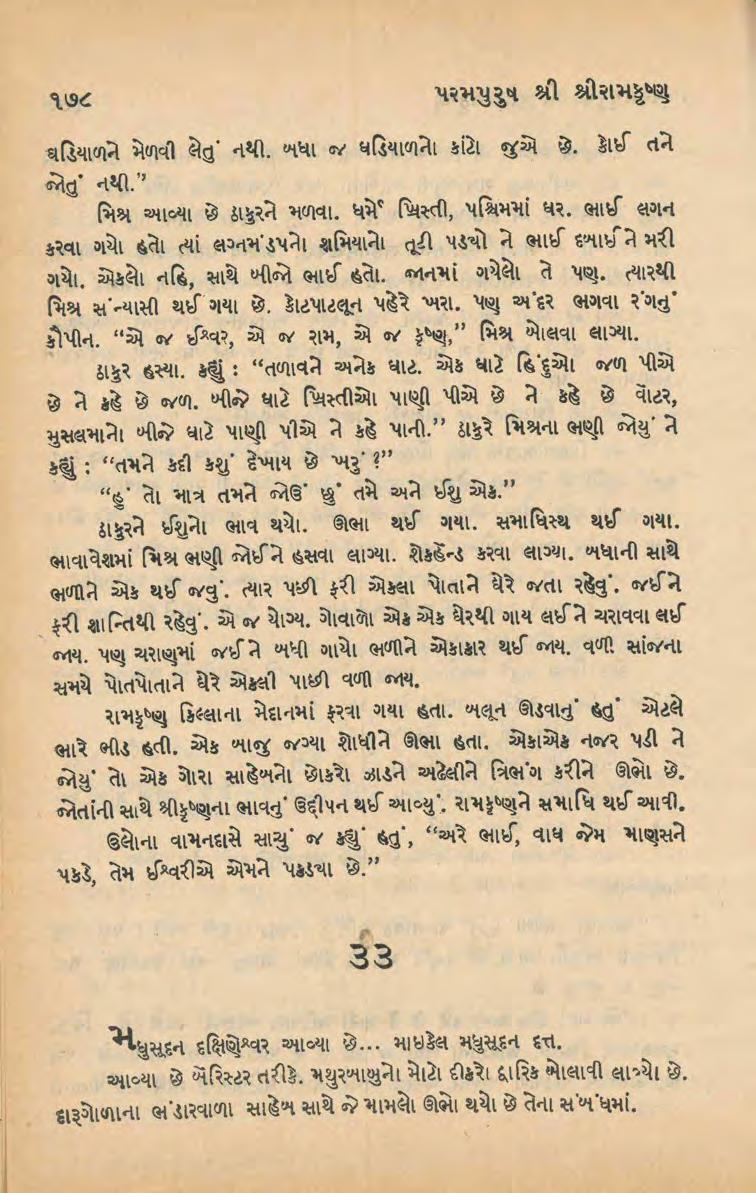 ૧૭૮ પરમપુરુષ શ્રી શ્રીરામકૃષ્ણ
ઘડિયાળને મેળવી લેતું નથી. બધા જ ઘડિયાળનો કાંટો જુએ છે. કોઈ તને
જોતું નથી.”
મિશ્ર આવ્યા છે ઠાકુરને મળવા. ધર્મે ખ્રિસ્તી, પશ્ચિમમાં ઘર. ભાઈ લગન
કરવા ગયો હતો ત્યાં લગ્નમંડપનો શમિયાનો તૂટી પડયો ને ભાઈ દબાઈને મરી
ગયો. એકલો નહિ, સાથે બીજો ભાઈ હતો. જાનમાં ગયેલો તે પણ. ત્યારથી
મિશ્ર સંન્યાસી થઈ ગયા છે. કોટપાટલૂન પહેરે ખરા. પણ અંદર ભગવા રંગનું
કૌપીન. “એ જ ઈશ્વર, એ જ રામ, એ જ કૃષ્ણ,” મિશ્ર બોલવા લાગ્યા.
ઠાકુર હસ્યા. કહ્યું : “તળાવને અનેક ઘાટ. એક ઘાટે હિંદુઓ જળ પીએ
છે ને કહે છે જળ. બીજે ઘાટે ખ્રિસ્તીઓ પાણી પીએ છે ને કહે છે વૉટર,
મુસલમાનો બીજે ઘાટે પાણી પીએ ને કહે પાની.” ઠાકુરે મિશ્રના ભણી જોયું ને
કહ્યું : “તમને કદી કશું દેખાય છે ખરું ?”
“હું તો માત્ર તમને જોઉં છું તમે અને ઈશુ એક.”
ઠાકુરને ઈશુનો ભાવ થયો. ઊભા થઈ ગયા. સમાધિસ્થ થઈ ગયા.
ભાવાવેશમાં મિશ્ર ભણી જોઈને હસવા લાગ્યા. શેકહૅન્ડ કરવા લાગ્યા. બધાની સાથે
ભળીને એક થઈ જવું. ત્યાર પછી ફરી એકલા પોતાને ઘેરે જતા રહેવું. જઈને
ફરી શાન્તિથી રહેવું. એ જ યોગ્ય. ગોવાળો એક એક ઘેરથી ગાય લઈને ચરાવવા લઈ
જાય. પણ ચરાણમાં જઈને બધી ગાયો ભળીને એકાકાર થઈ જાય. વળી સાંજના
સમયે પોતપોતાને ઘેરે એકલી પાછી વળી જાય.
રામકૃષ્ણ કિલ્લાના મેદાનમાં ફરવા ગયા હતા. બલૂન ઊડવાનું હતું એટલે
ભારે ભીડ હતી. એક બાજુ જગ્યા શોધીને ઊભા હતા. એકાએક નજર પડી ને
જોયું તો એક ગોરા સાહેબનો છોકરો ઝાડને અઢેલીને ત્રિભંગ કરીને ઊભો છે.
જોતાંની સાથે શ્રીકૃષ્ણના ભાવનું ઉદ્દીપન થઈ આવ્યું. રામકૃષ્ણને સમાધિ થઈ આવી.
ઉલોના વામનદાસે સાચું જ કહ્યું હતું, “અરે ભાઈ, વાઘ જેમ માણસને
પકડે, તેમ ઈશ્વરીએ એમને પકડયા છે.”
૩૩
મધુસૂદન દક્ષિણેશ્વર આવ્યા છે... માઇકેલ મધુસૂદન દત્ત.
આવ્યા છે બૅરિસ્ટર તરીકે. મથુરબાબુનો મોટો દીકરો દ્વારિક બોલાવી લાવ્યો છે.
દારૂગોળાના ભંડારવાળા સાહેબ સાથે જે મામલો ઊભો થયો છે તેના સંબંધમાં.